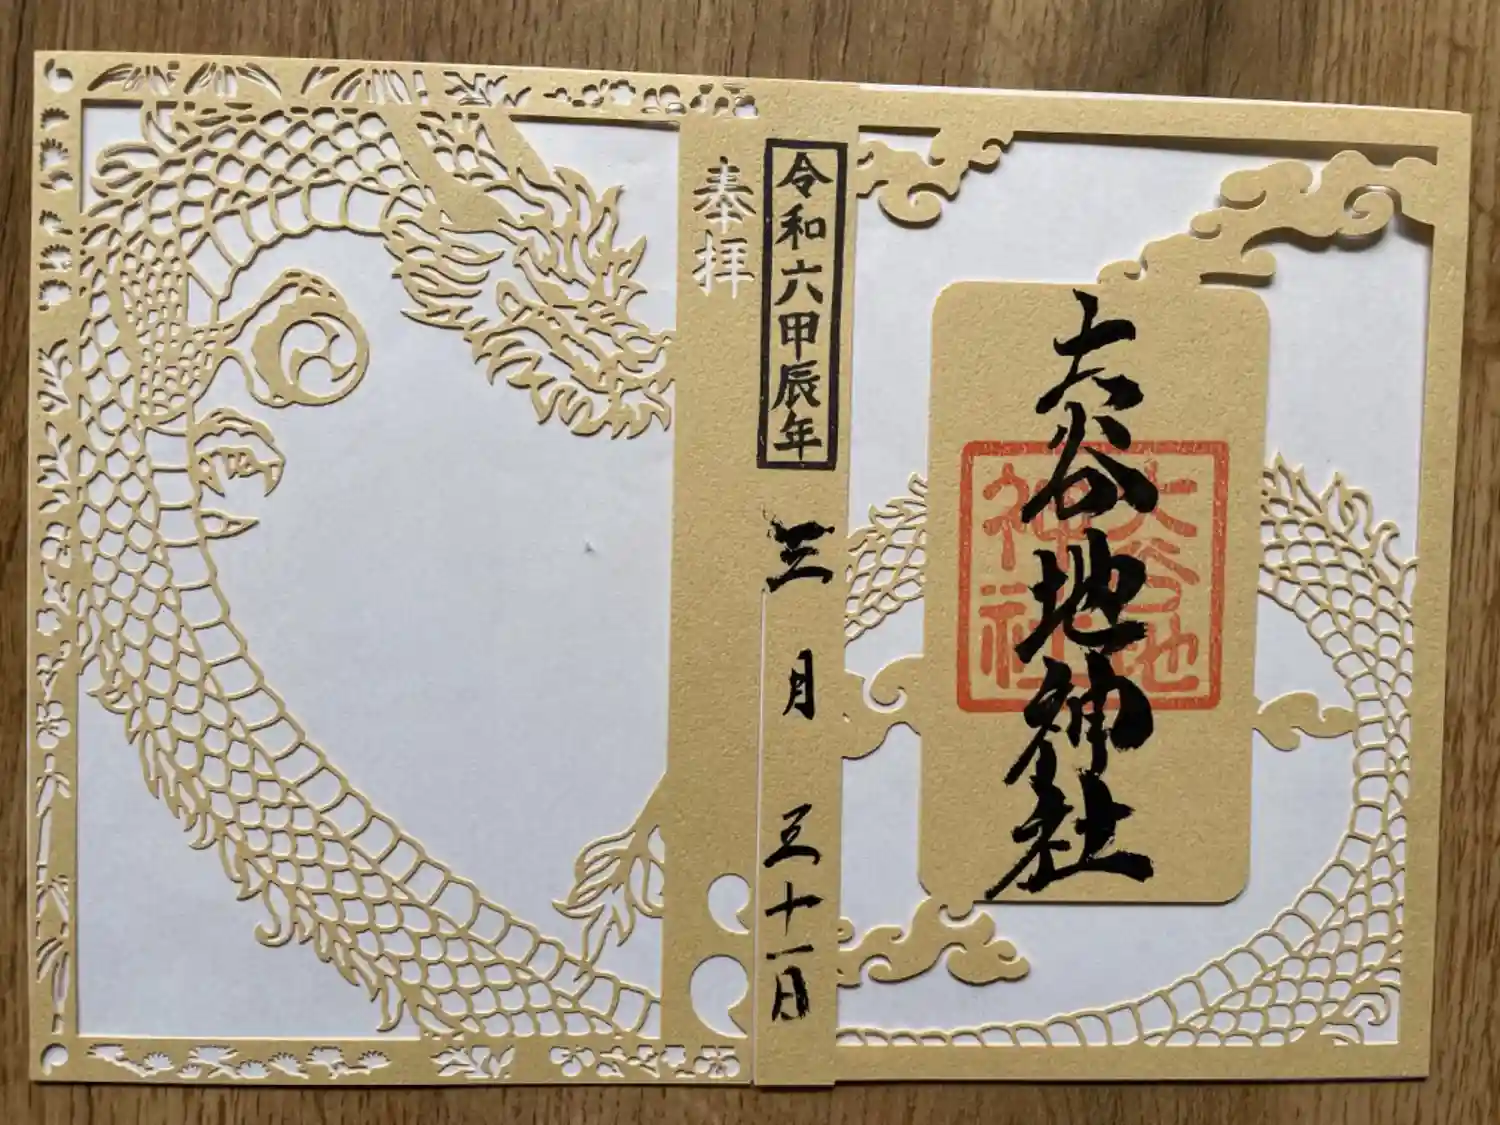 大谷地神社
大谷地
神社
令和六甲辰年
三月三十一日
奉拝